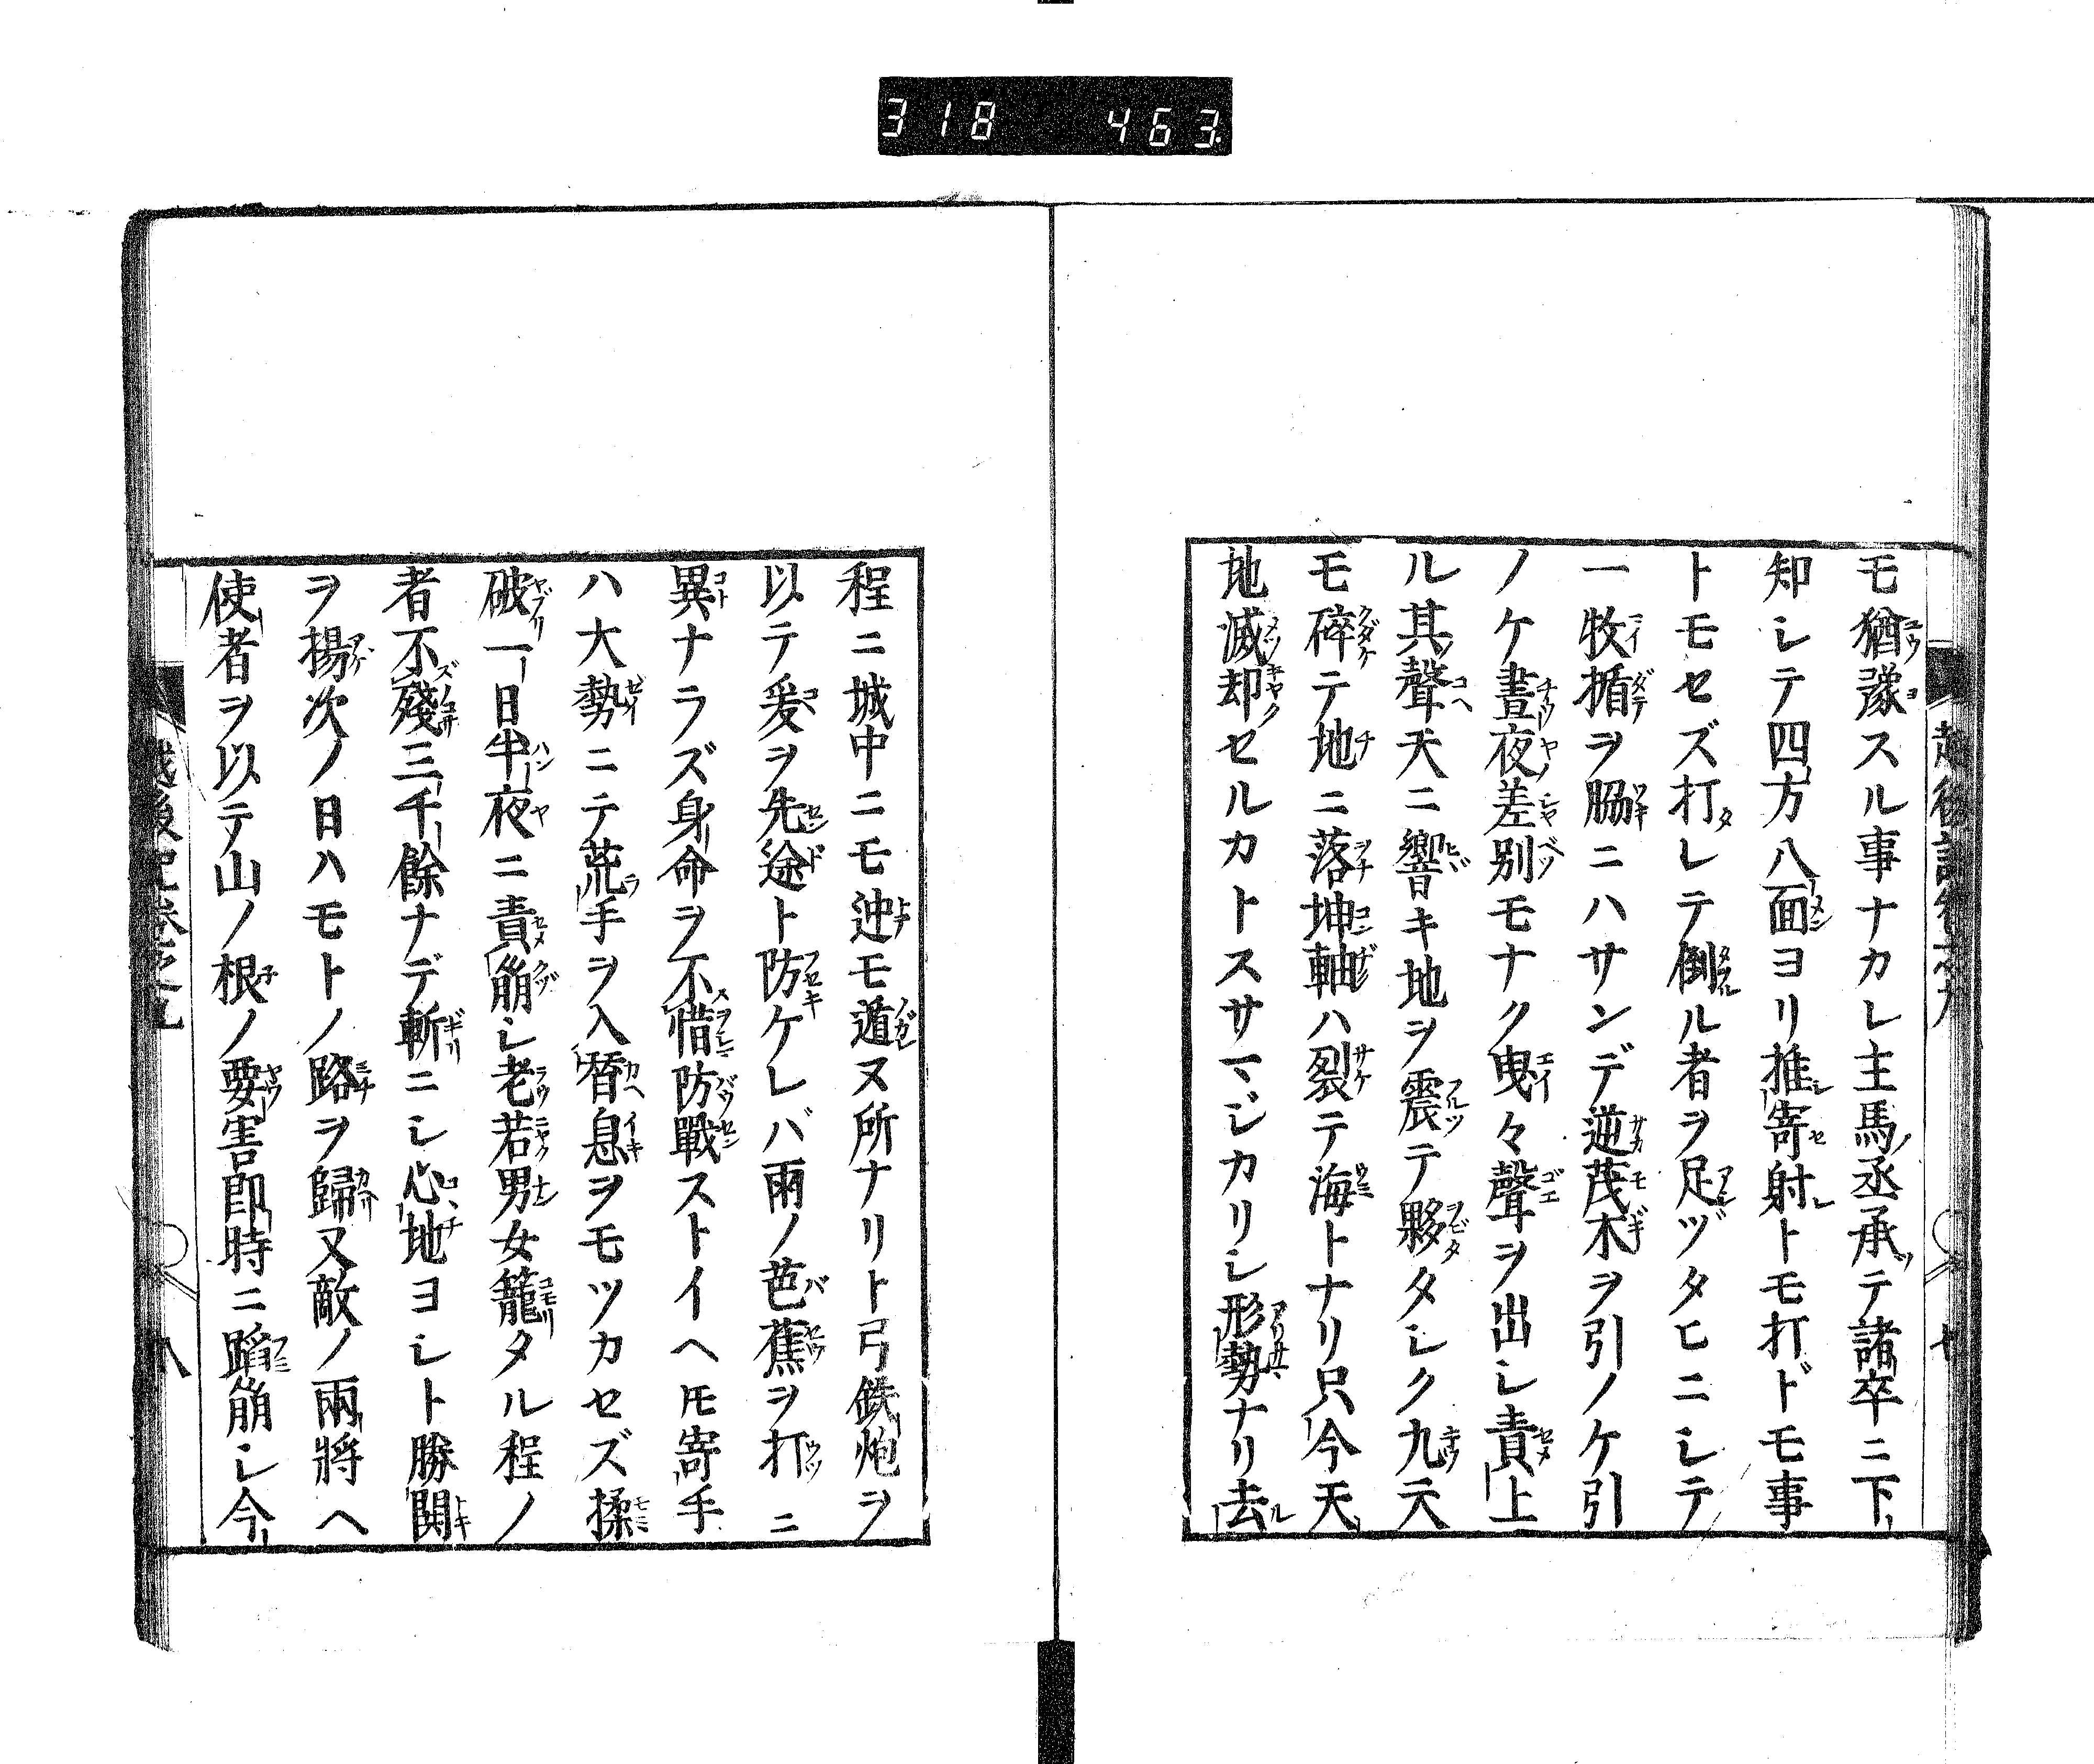 318 463
モ猶豫スル事ナカレ主馬丞承テ諸卒ニ下
知シテ四方八面ヨリ推寄射トモ打ドモ事
トモセズ打レテ倒ル者ヲ足ヅタヒニシテ
一牧楯ヲ脇ニハサンデ逆茂木ヲ引ノケ引
ノケ晝夜差別モナク曳々聲ヲ出シ責上
ル其聲天ニ響キ地ヲ震テ夥タシク九天
モ碎テ地ニ落坤軸ハ裂テ海トナリ只今天
地滅却セルカトスサマジカリシ形勢ナリ去
程ニ城中ニモ迚モ遁ヌ所ナリト弓鉄炮ヲ
以テ爰ヲ先途ト防ケレバ雨ノ芭蕉ヲ打ニ
異ナラズ身命ヲ不惜防戰ストイヘ𪜈寄手
ハ大勢ニテ荒手ヲ入替息ヲモツカセズ揉
破一日半夜ニ責崩シ老若男女籠タル程ノ
者不殘三千餘ナデ斬ニシ心地ヨシト勝鬨
ヲ揚次ノ日ハモトノ路ヲ歸又敵ノ兩將ヘ
使者ヲ以テ山ノ根ノ要害即時ニ蹈崩シ今
八